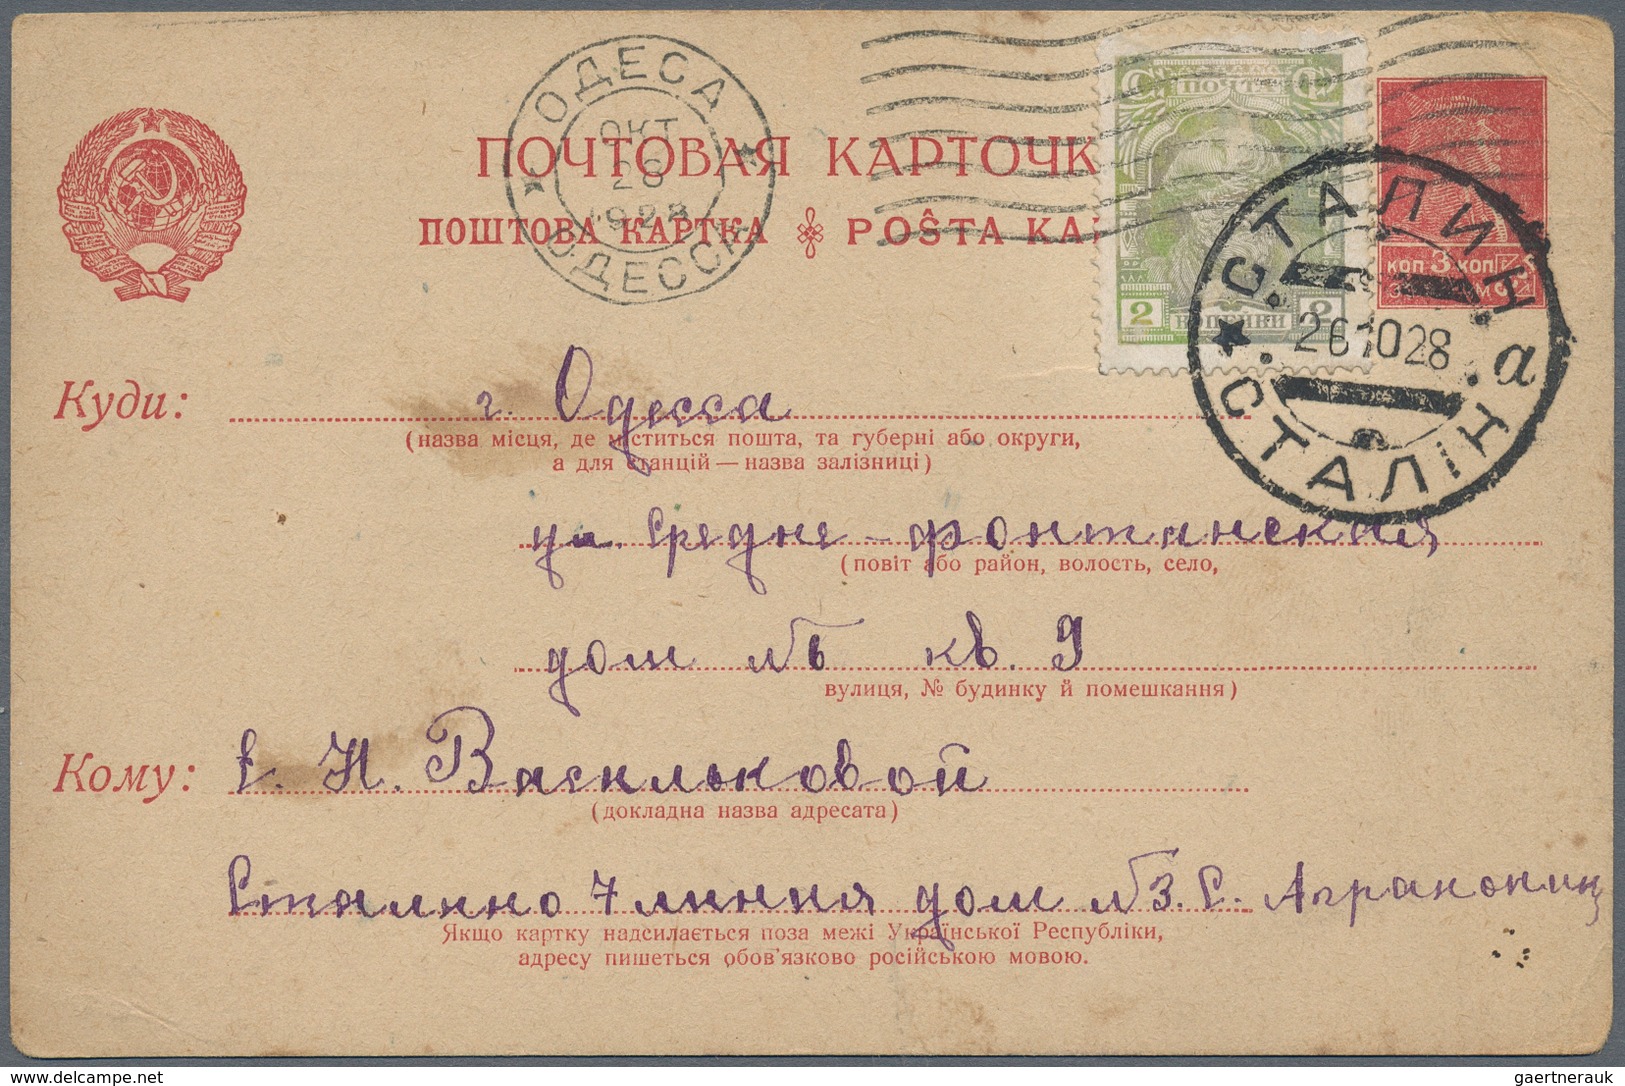 ОДЕСА
ОКТ
28
1928
ОДЕССА
ПОЧТОВАЯ КАРТОЧК
ПОШТОВА КАРТКА POŜTA KA
ПОЧТА
2 КОПЕЙКИ 2
КОП 3 КОП
СТАЛИН
261028
а
СТАЛІН
Куди: г. Одесса
(назва місця, де міститься пошта, та губерні або округи,
а для станцій — назва залізниці)
ул. Средне-фонтанская
(повіт або район, волость, село,
дом № кв. 9
вулиця, № будинку й помешкання)
Кому: Е. Н. Васильковой
(докладна назва адресата)
Сталино 7 линия дом №3. С.
Якщо картку надсилається поза межі Української Республіки,
адресу пишеться обов'язково російською мовою.
delcampe.net
gaertnerauk